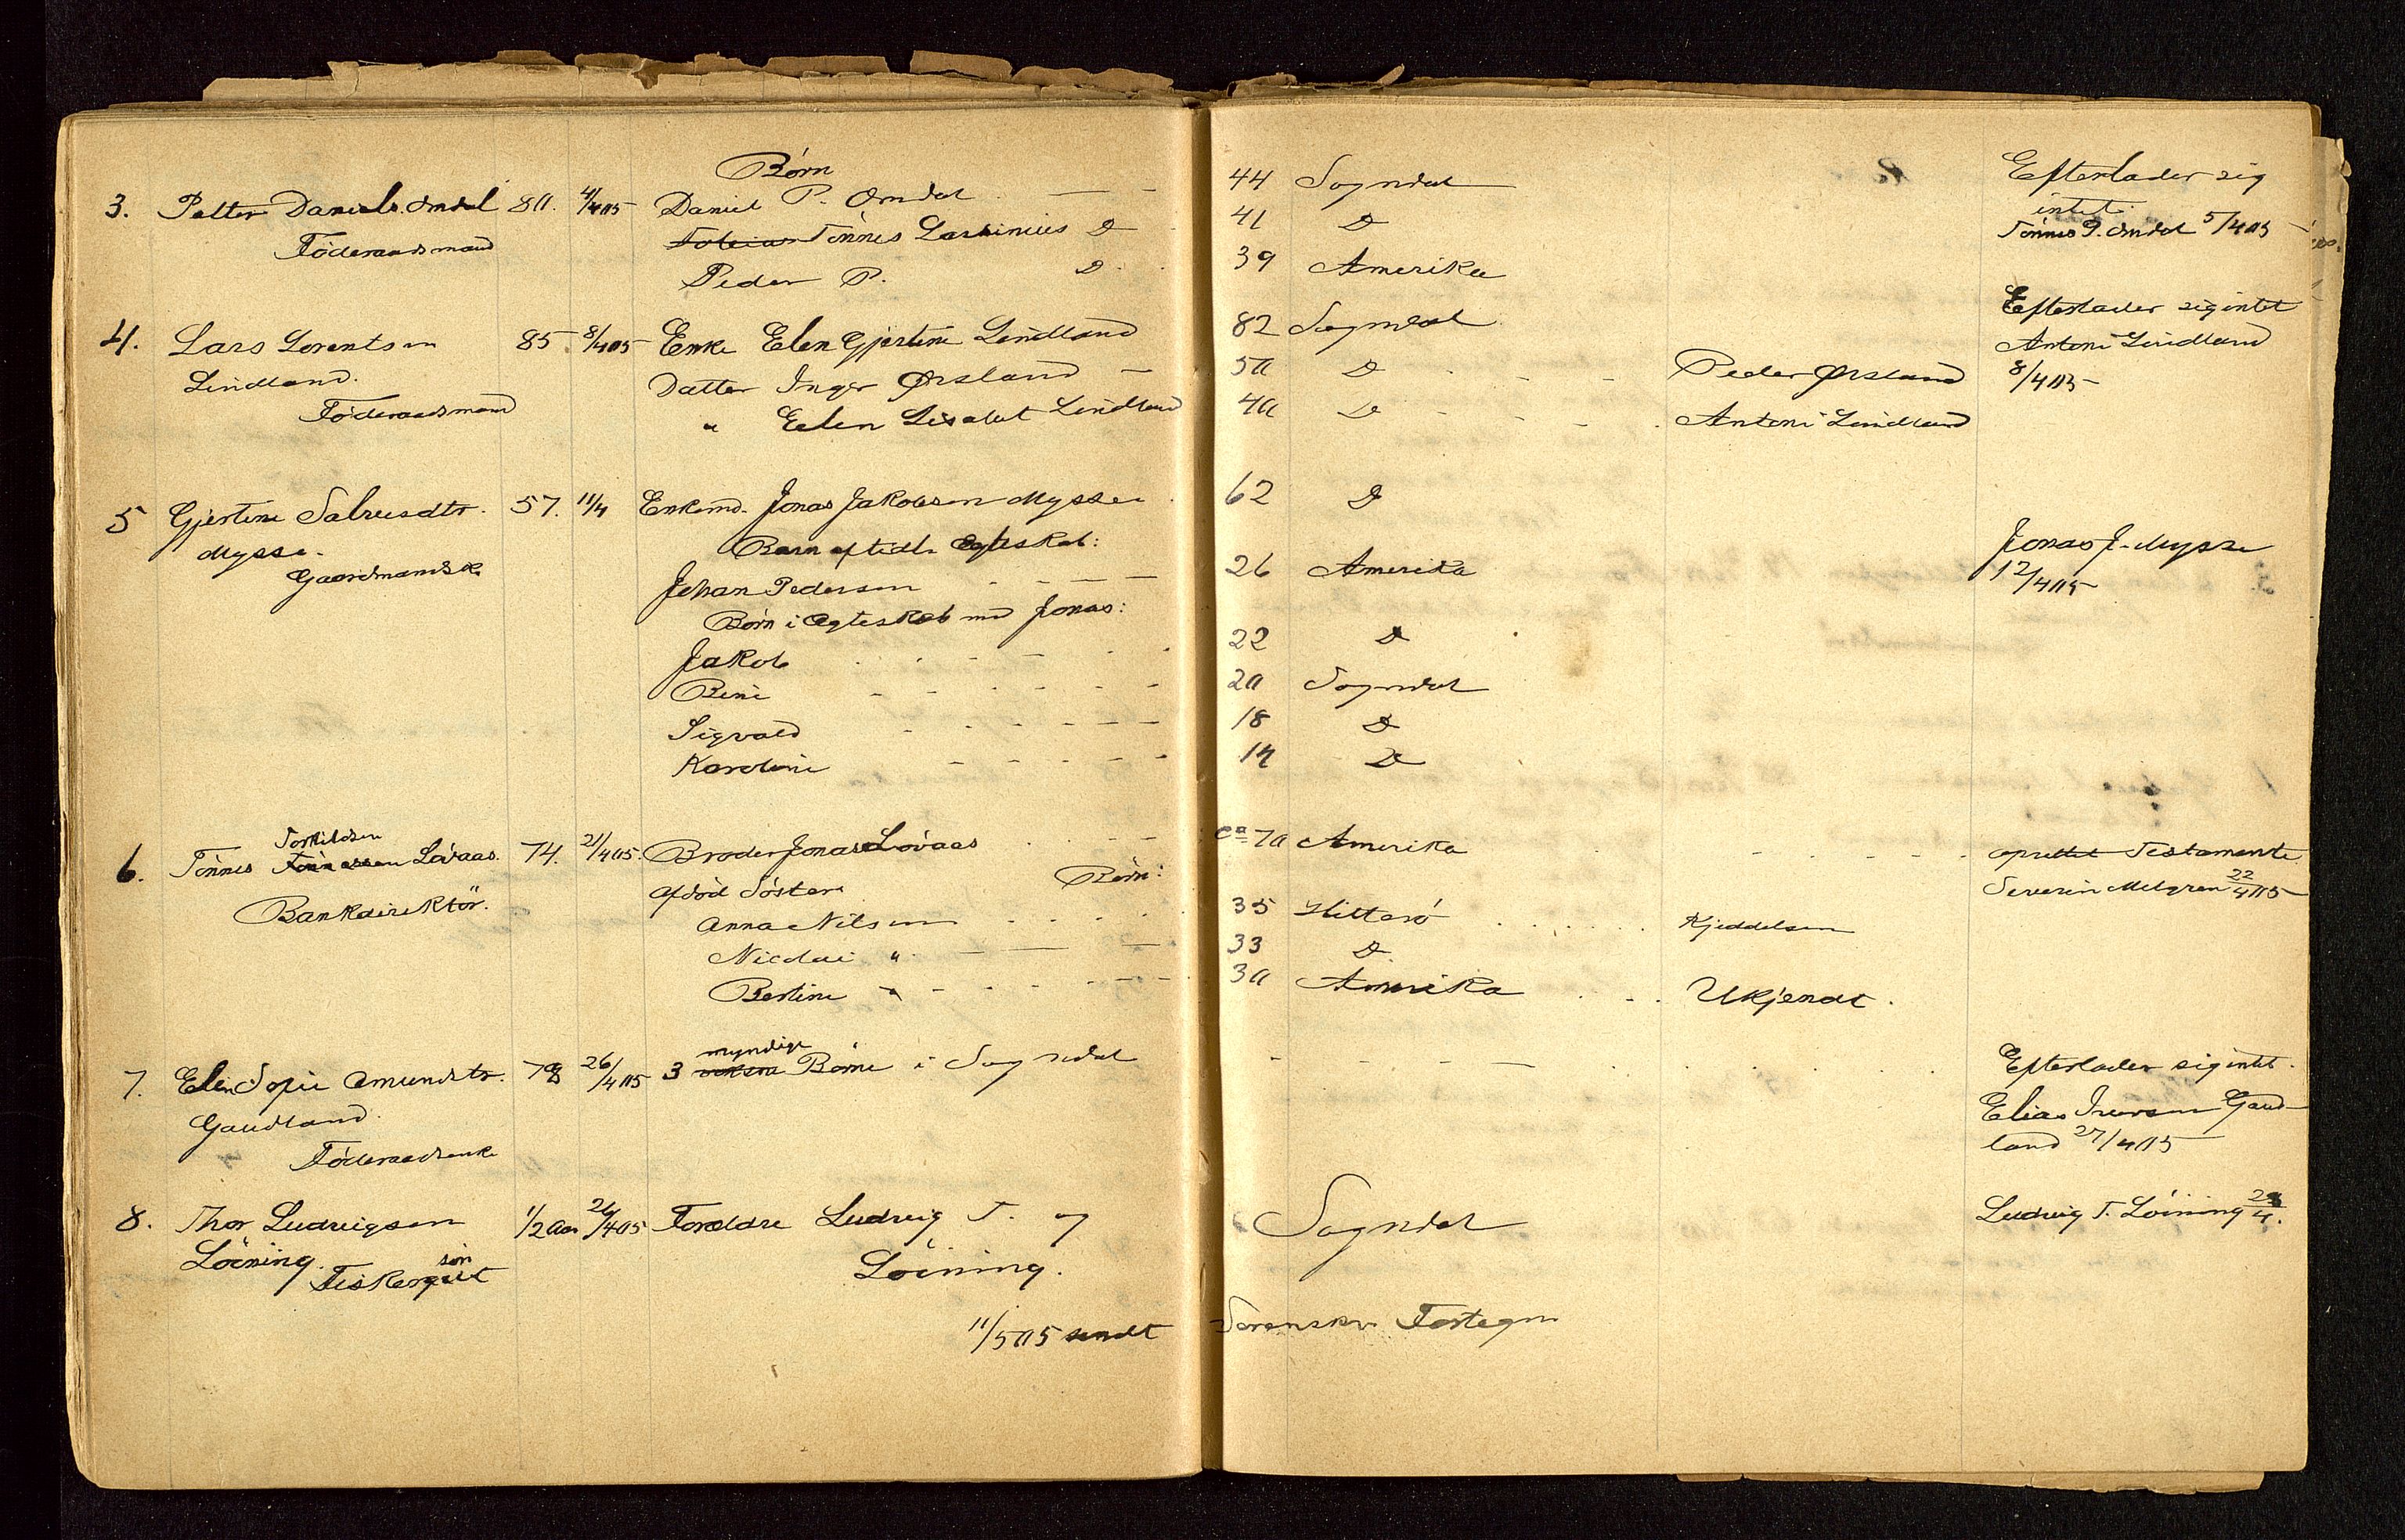 Børn
3. Petter Daniels. Omdal 80. 4/4 05 Daniel P. Omdal — - 44 Sogndal Efterlader sig
intet.
Föderaadsmand Tobias Tönnes Lassinius D 41 D Tönnes P. Omdal 5/4 05
Peder P. D 39 Amerika
4. Lars Lorentsen 85. 8/4 05 Enke Elen Gjertine Lindland 82 Sogndal Efterlader sig intet
Lindland. Datter Inger Ørsland — 50 D Peder Ørsland Antoni Lindland
8/4 05
Föderaadsmand " Eelen Lisabet Lindland 40 D Antoni Lindland
5 Gjertine Salvesdtr. 57. 11/4 Enkemd. Jonas Jakobsen Mysse 62 D
Mysse. Barn af tidl. Egteskab:
Gaardmandsk. Johan Pedersen 26 Amerika Jonas J. Mysse
12/4 05
Børn i Egteskab med Jonas:
Jakob 22 D
Beni 20 Sogndal
Sigvald 18 D
Karoline 14 D
Torkildsen
6. Tönnes Tönnessen Løvaas. 74. 21/4 05. Broder Jonas Løvaas ca 70 Amerika oprettet Testamente
Bankdirektör. Afdöd Söster Börn: Severin Molgren 22/4 05
Anna Nilsen 35 Hitterö Kjeddelsen
Nicolai " 33 D
Bertine " 30 Amerika Ukjendt.
myndige
7. Elen Sofie Amundsdtr. 78 26/4 05 3 voksne Börn i Sogndal Efterlader sig intet.
Gaudland. Elias Iversen Gaud-
Föderaadsenke land 27/4 05
8. Thor Ludvigsen 1/2 Aar 26/4 05 Forældre Ludvig T. og Sogndal Ludvig T. Löining 28/4.
Löining. Fiskergut sön Löining.
11/5 05 sendt Sorenskr. Fortegn